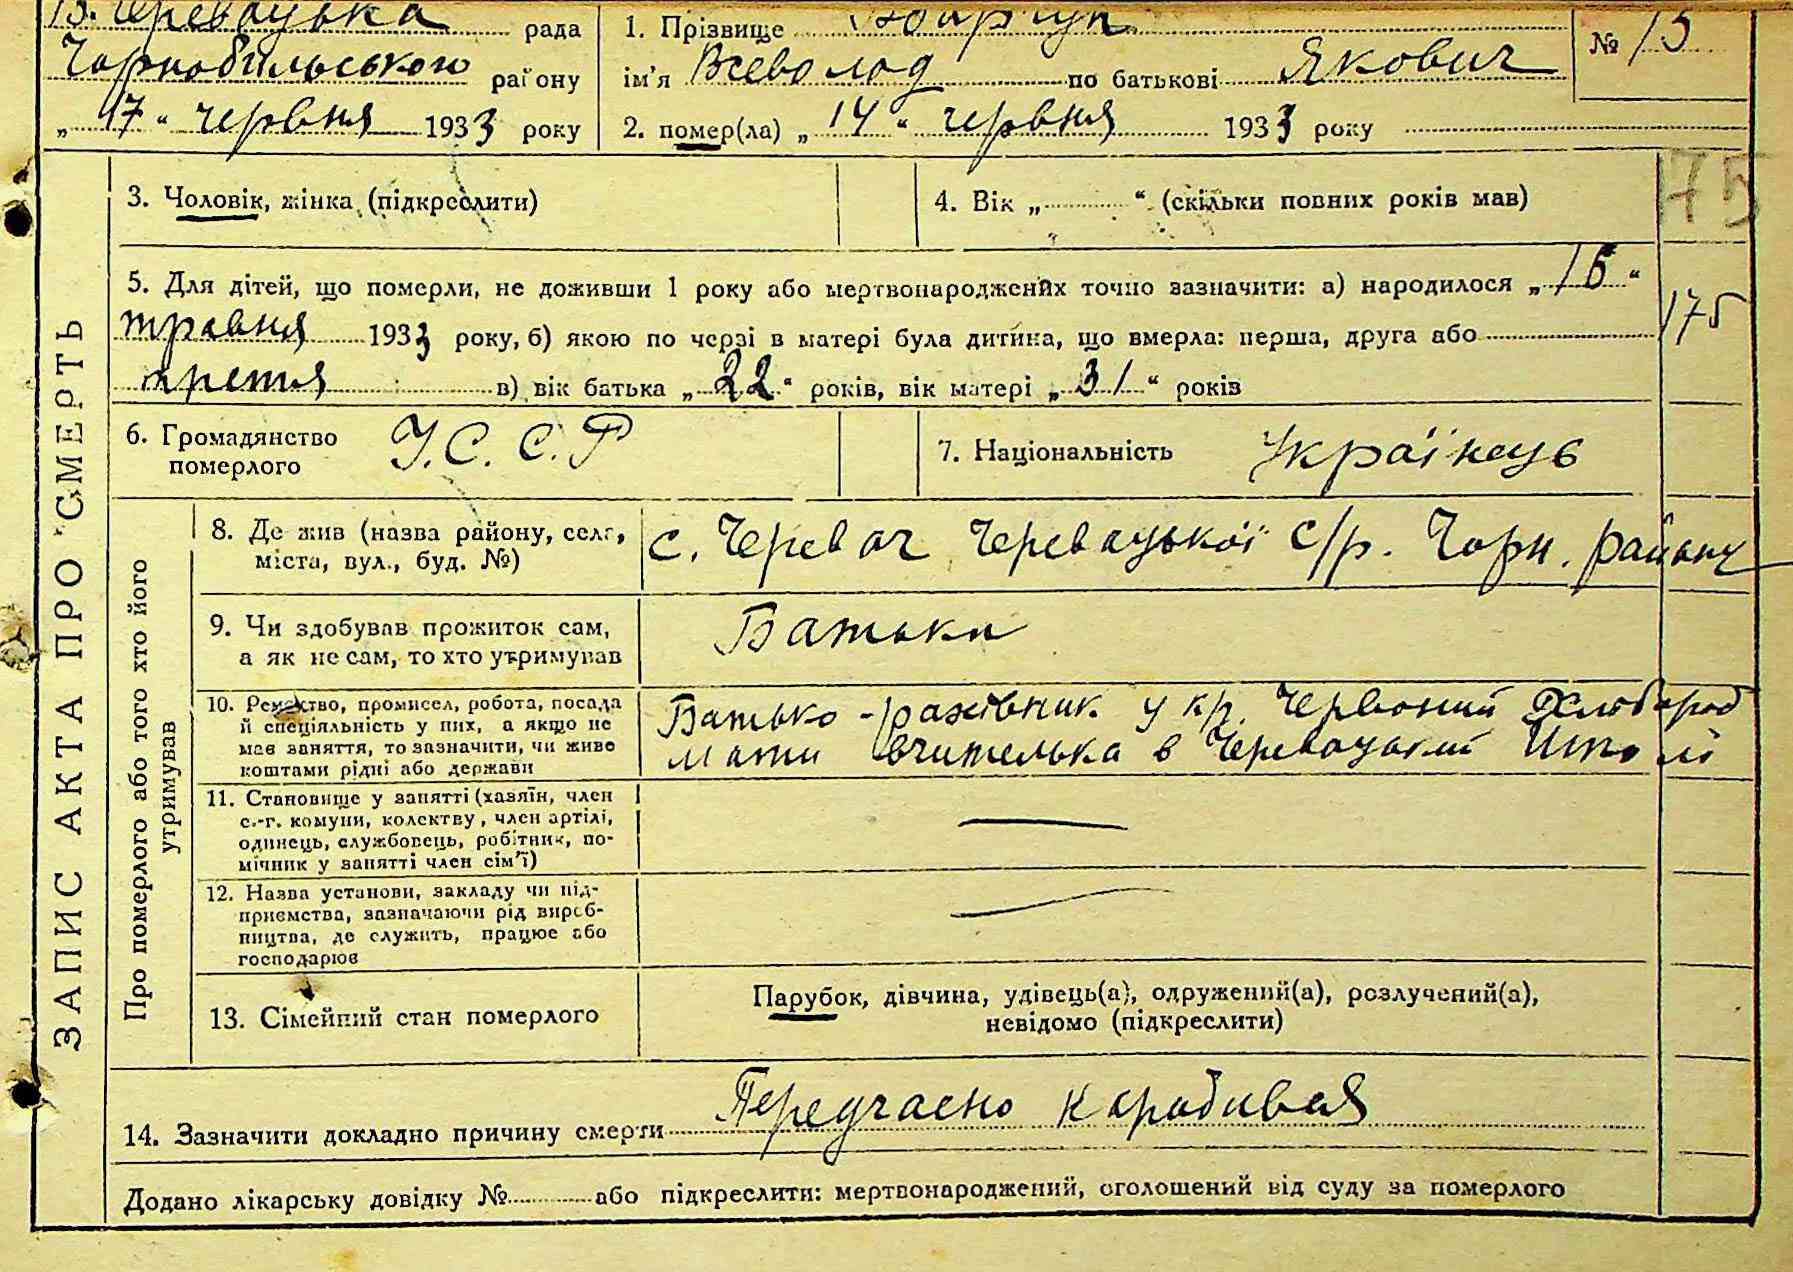 Черевацька рада
Чорнобильського району
„ 17 “ червня 1933 року
1. Прізвище
ім'я Всеволод по батькові Якович
2. помер(ла) „ 14 “ червня 1933 року
№ 15
ЗАПИС АКТА ПРО СМЕРТЬ
3. Чоловік, жінка (підкреслити)
4. Вік „ “ (скільки повних років мав)
175
5. Для дітей, що померли, не доживши 1 року або мертвонароджених точно зазначити: а) народилося „ 15 “
травня 1933 року, б) якою по черзі в матері була дитина, що вмерла: перша, друга або
175
третя в) вік батька „ 22 “ років, вік матері „ 31 “ років
6. Громадянство
померлого
У.С.С.Р
7. Національність Українець
Про померлого або того хто його
утримував
8. Де жив (назва району, села,
міста, вул., буд. №)
с. Черевач Черевацької с/р. Чорн. району
9. Чи здобував прожиток сам,
а як не сам, то хто утримував
Батьки
10. Ремество, промисел, робота, посада
й спеціяльність у них, а якщо не
має заняття, то зазначити, чи живе
коштами рідні або держави
Батько - рахівник у кр. Червоний Хлобород
мати вчителька в Черевацькій Школі
11. Становище у занятті (хазяїн, член
с.-г. комуни, колектву, член артілі,
одинець, службовець, робітник, по-
мічник у занятті член сім'ї)
12. Назва установи, закладу чи під-
приємства, зазначаючи рід вироб-
ництва, де служить, працює або
господарює
13. Сімейний стан померлого
Парубок, дівчина, удівець(а), одружений(а), розлучений(а),
невідомо (підкреслити)
14. Зазначити докладно причину смерти Передчасно
Додано лікарську довідку № або підкреслити: мертвонароджений, оголошений від суду за померлого